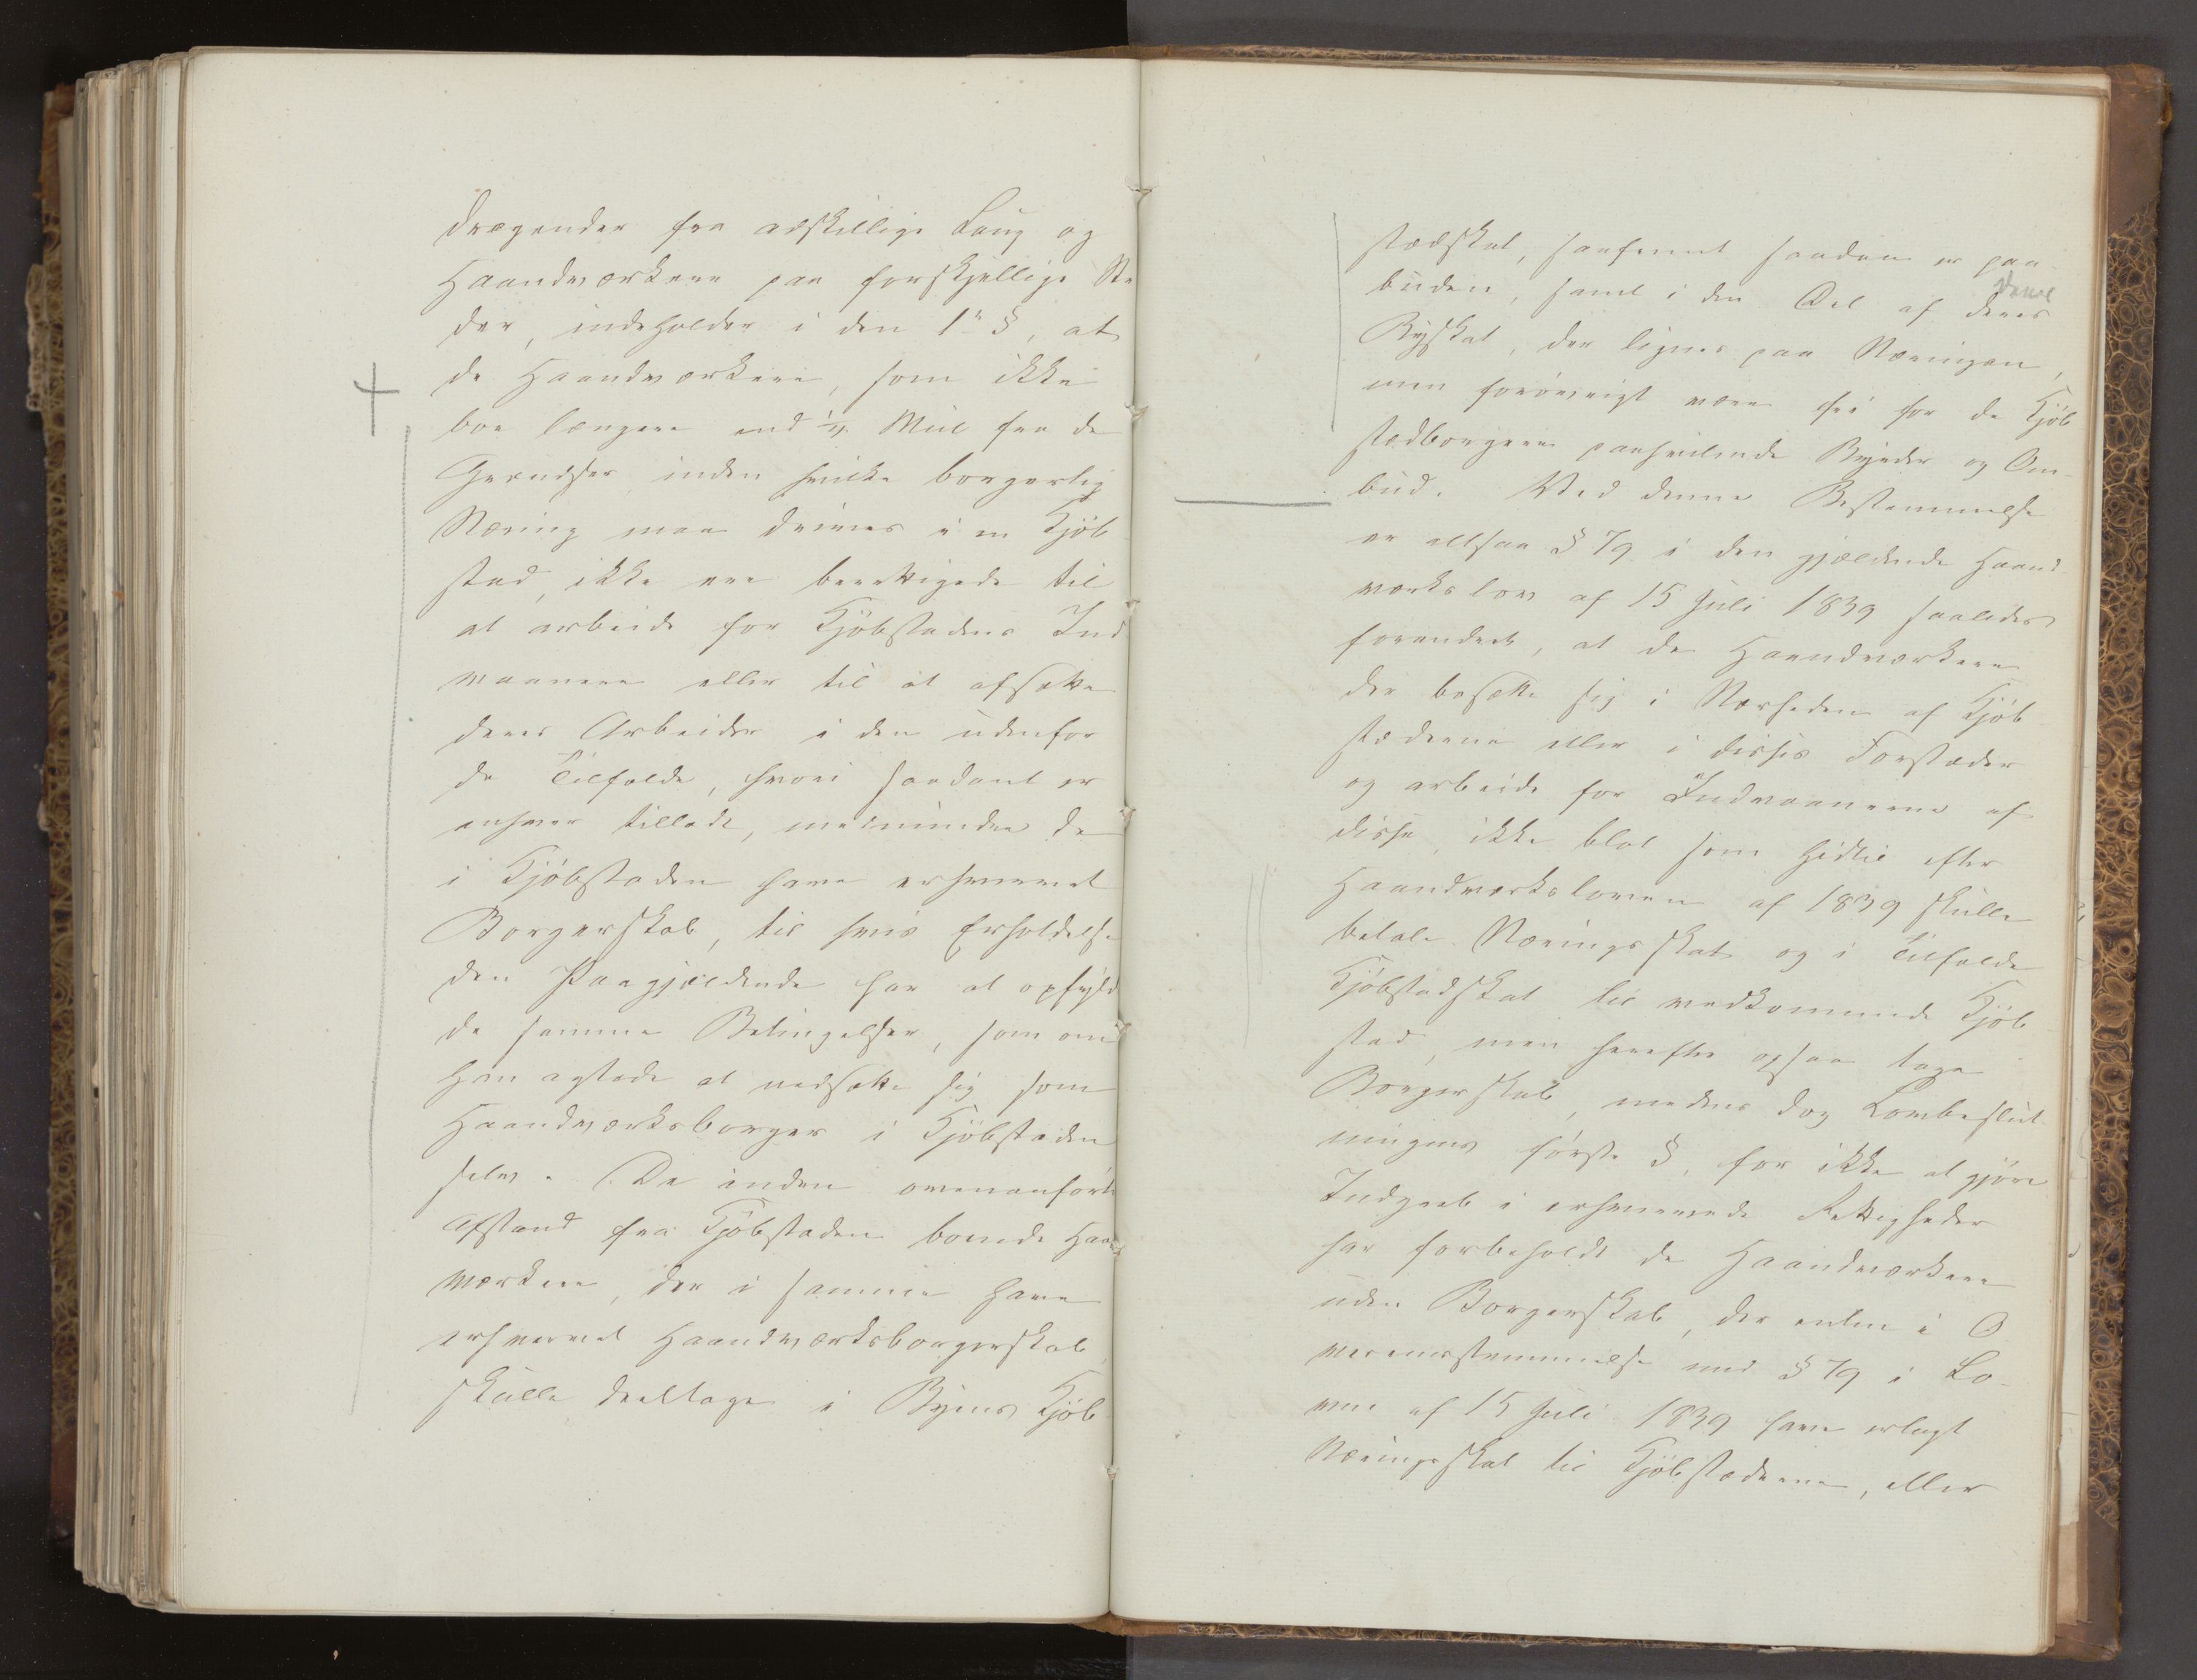 dragender fra adskillige Laug og
Haandværkere paa forskjellige Ste
der, indeholder i den 1ste §, at
de Haandværkere, som ikke
boe længere end 1/4 Miil fra de
Grændser, inden hvilke borgerlig
Næring maa drives i en Kjöb
stad, ikke ere berettigede til
at arbeide for Kjöbstadens Ind
vaanere eller til at afsætte
deres Arbeider i den udenfor
de Tilfælde, hvori saadant er
enhver tilladt, medmindre de
i Kjöbstaden have erhvervet
Borgerskab, til hvis Erholdelse
den Paagjældende har at opfylde
de samme Betingelser, som om
han agtede at nedsætte sig som
Haandværksborger i Kjöbstaden
selv. De inden ovenanförte
Afstand fra Kjöbstaden boende Haand
værkere, der i samme have
erhvervet Haandværksborgerskab,
skulle deeltage i Byens Kjöb
stadskat, saafremt saadan er paa
buden, samt i den Del af deres
Byskat, der lignes paa Næringen,
men forövrigt være fri for de Kjöb
stadborgerne paahvilende Byrder og Om-
bud. Ved denne Bestemmelse
er altsaa § 79 i den gjældende Haand
værkslov af 15 Juli 1839 saaledes
forandret, at de Haandværkere
der bosætte sig i Nærheden af Kjöb
stæderne eller i disses Forstæder
og arbeide for Indvaanerne af
disse, ikke blot som hidtil efter
Haandværksloven af 1839 skulle
betale Næringsskat og i Tilfælde
Kjöbstadskat til vedkommende Kjöb
stad, men herefter ogsaa tage
Borgerskab, medens dog Lovbeslut
ningens förste §, for ikke at gjöre
Indgreb i erhvervede Rettigheder
har forbeholdt de Haandværkere
uden Borgerskab, der enten i O
verensstemmelse med § 79 i Lo-
ven af 15 Juli 1839 have erlagt
Næringsskat til Kjöbstæderne, eller